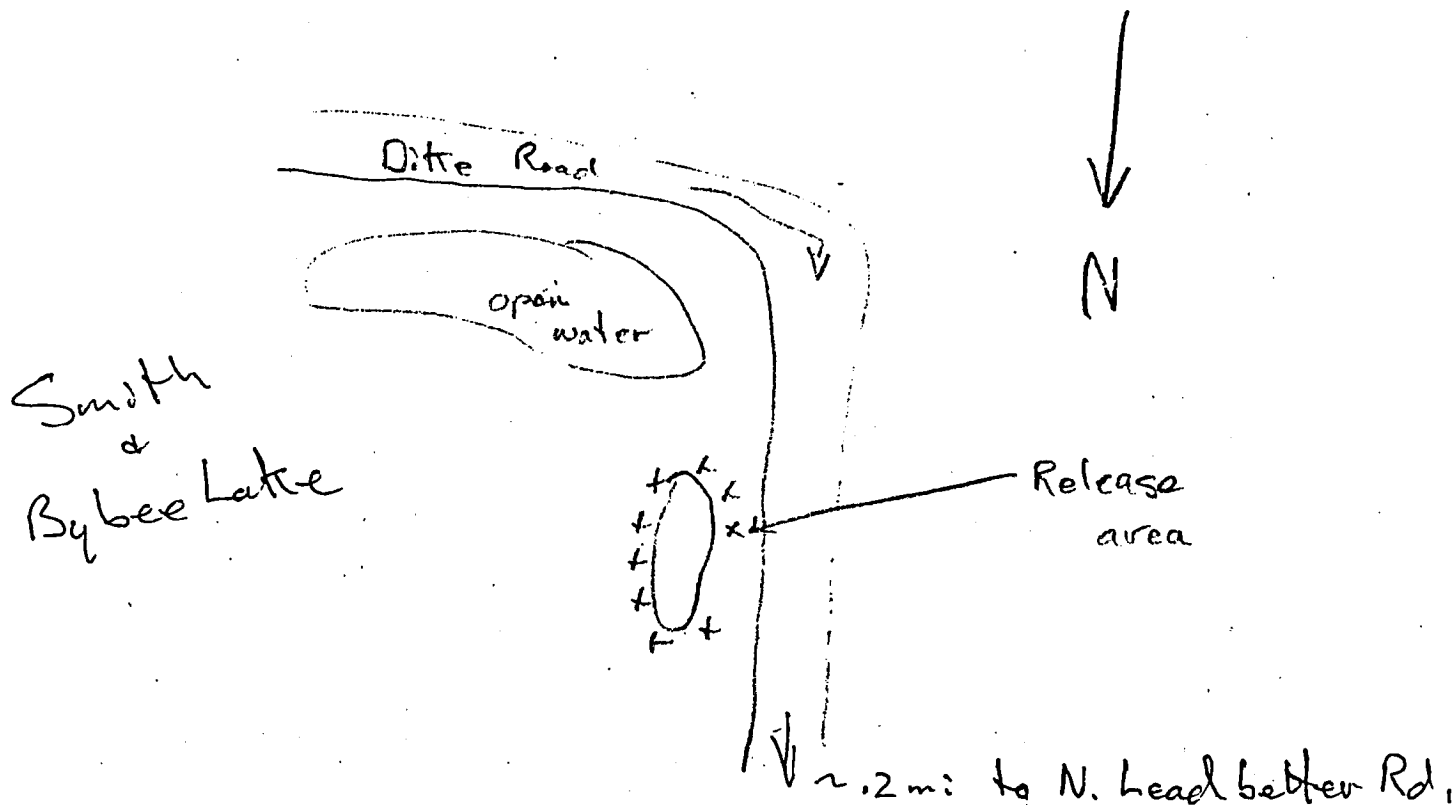 Ditte Road
N
open
water
Smith
&
Bybee Lake
Release
area
~.2 mi to N. Leadbetter Rd.